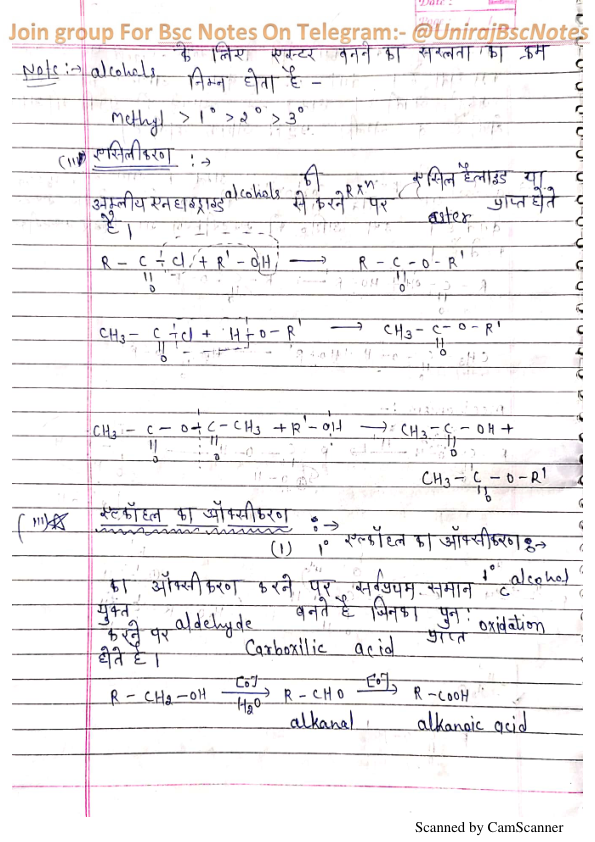 Join group For Bsc Notes On Telegram:- @UnirajBscNotes
के लिए एस्टर बनने का सरलता का क्रम
Note:→ alcohols निम्न होता है -
Methyl > 1° > 2° > 3°
(II) एसिलीकरण :→
alcohols की Rxn एसिल हैलाइड या
अम्लीय एनहाइड्राइड से करने पर ester प्राप्त होते
है।
R - C - Cl + R' - OH ⟶ R - C - O - R'
|| ||
O O
CH3 - C - Cl + H - O - R' ⟶ CH3 - C - O - R'
|| ||
O O
CH3 - C - O - C - CH3 + R' - OH ⟶ CH3 - C - OH +
|| || ||
O O O
CH3 - C - O - R'
||
O
(III) एल्कॉहल का ऑक्सीकरण :→
(1) 1° एल्कॉहल का ऑक्सीकरण :→
1° alcohol
का ऑक्सीकरण करने पर सर्वप्रथम समान C
युक्त aldehyde बनते है जिनका पुन: oxidation
करने पर Carboxilic acid प्राप्त
होते है।
R - CH2 - OH [O] ⟶ H2O R - CHO [O] ⟶ R - COOH
alkanal alkanoic acid
Scanned by CamScanner